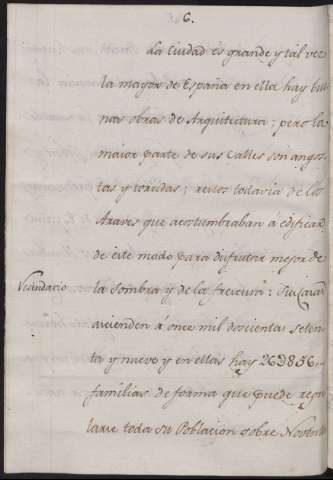 6.
La Ciudad es grande y tal vez
la mayor de España en ella hay bue
nas obras de Arquitectura; pero la
maior parte de sus Calles son angos
tas y torcidas; restos todavia de los
Arabes que acostumbraban á edificar
de este modo para disfrutar mejor de
Vecindario la sombra y de la frescura: Sus Casas
ascienden á once mil doscientas seten
ta y nueve y en ellas hay 26D856
familias de forma que puede regu
larse toda su Poblacion sobre